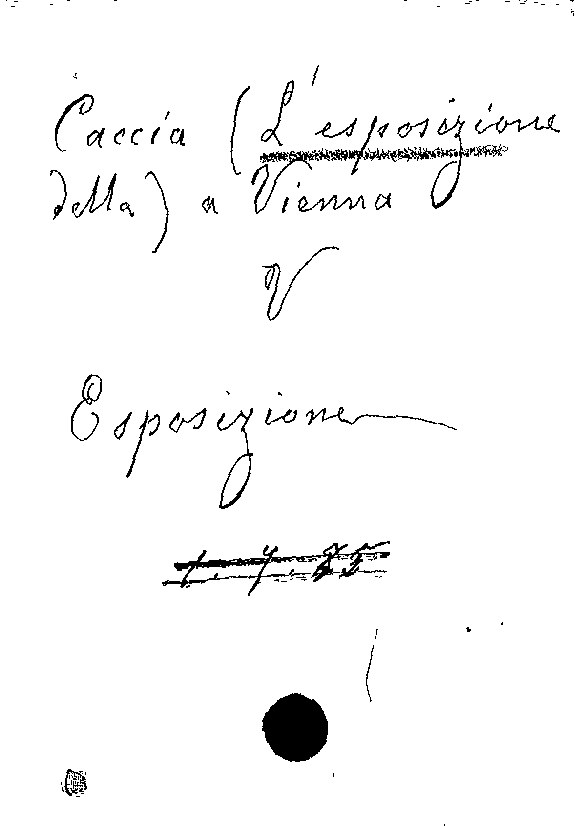 Caccia (L'esposizione
della) a Vienna
V
Esposizione